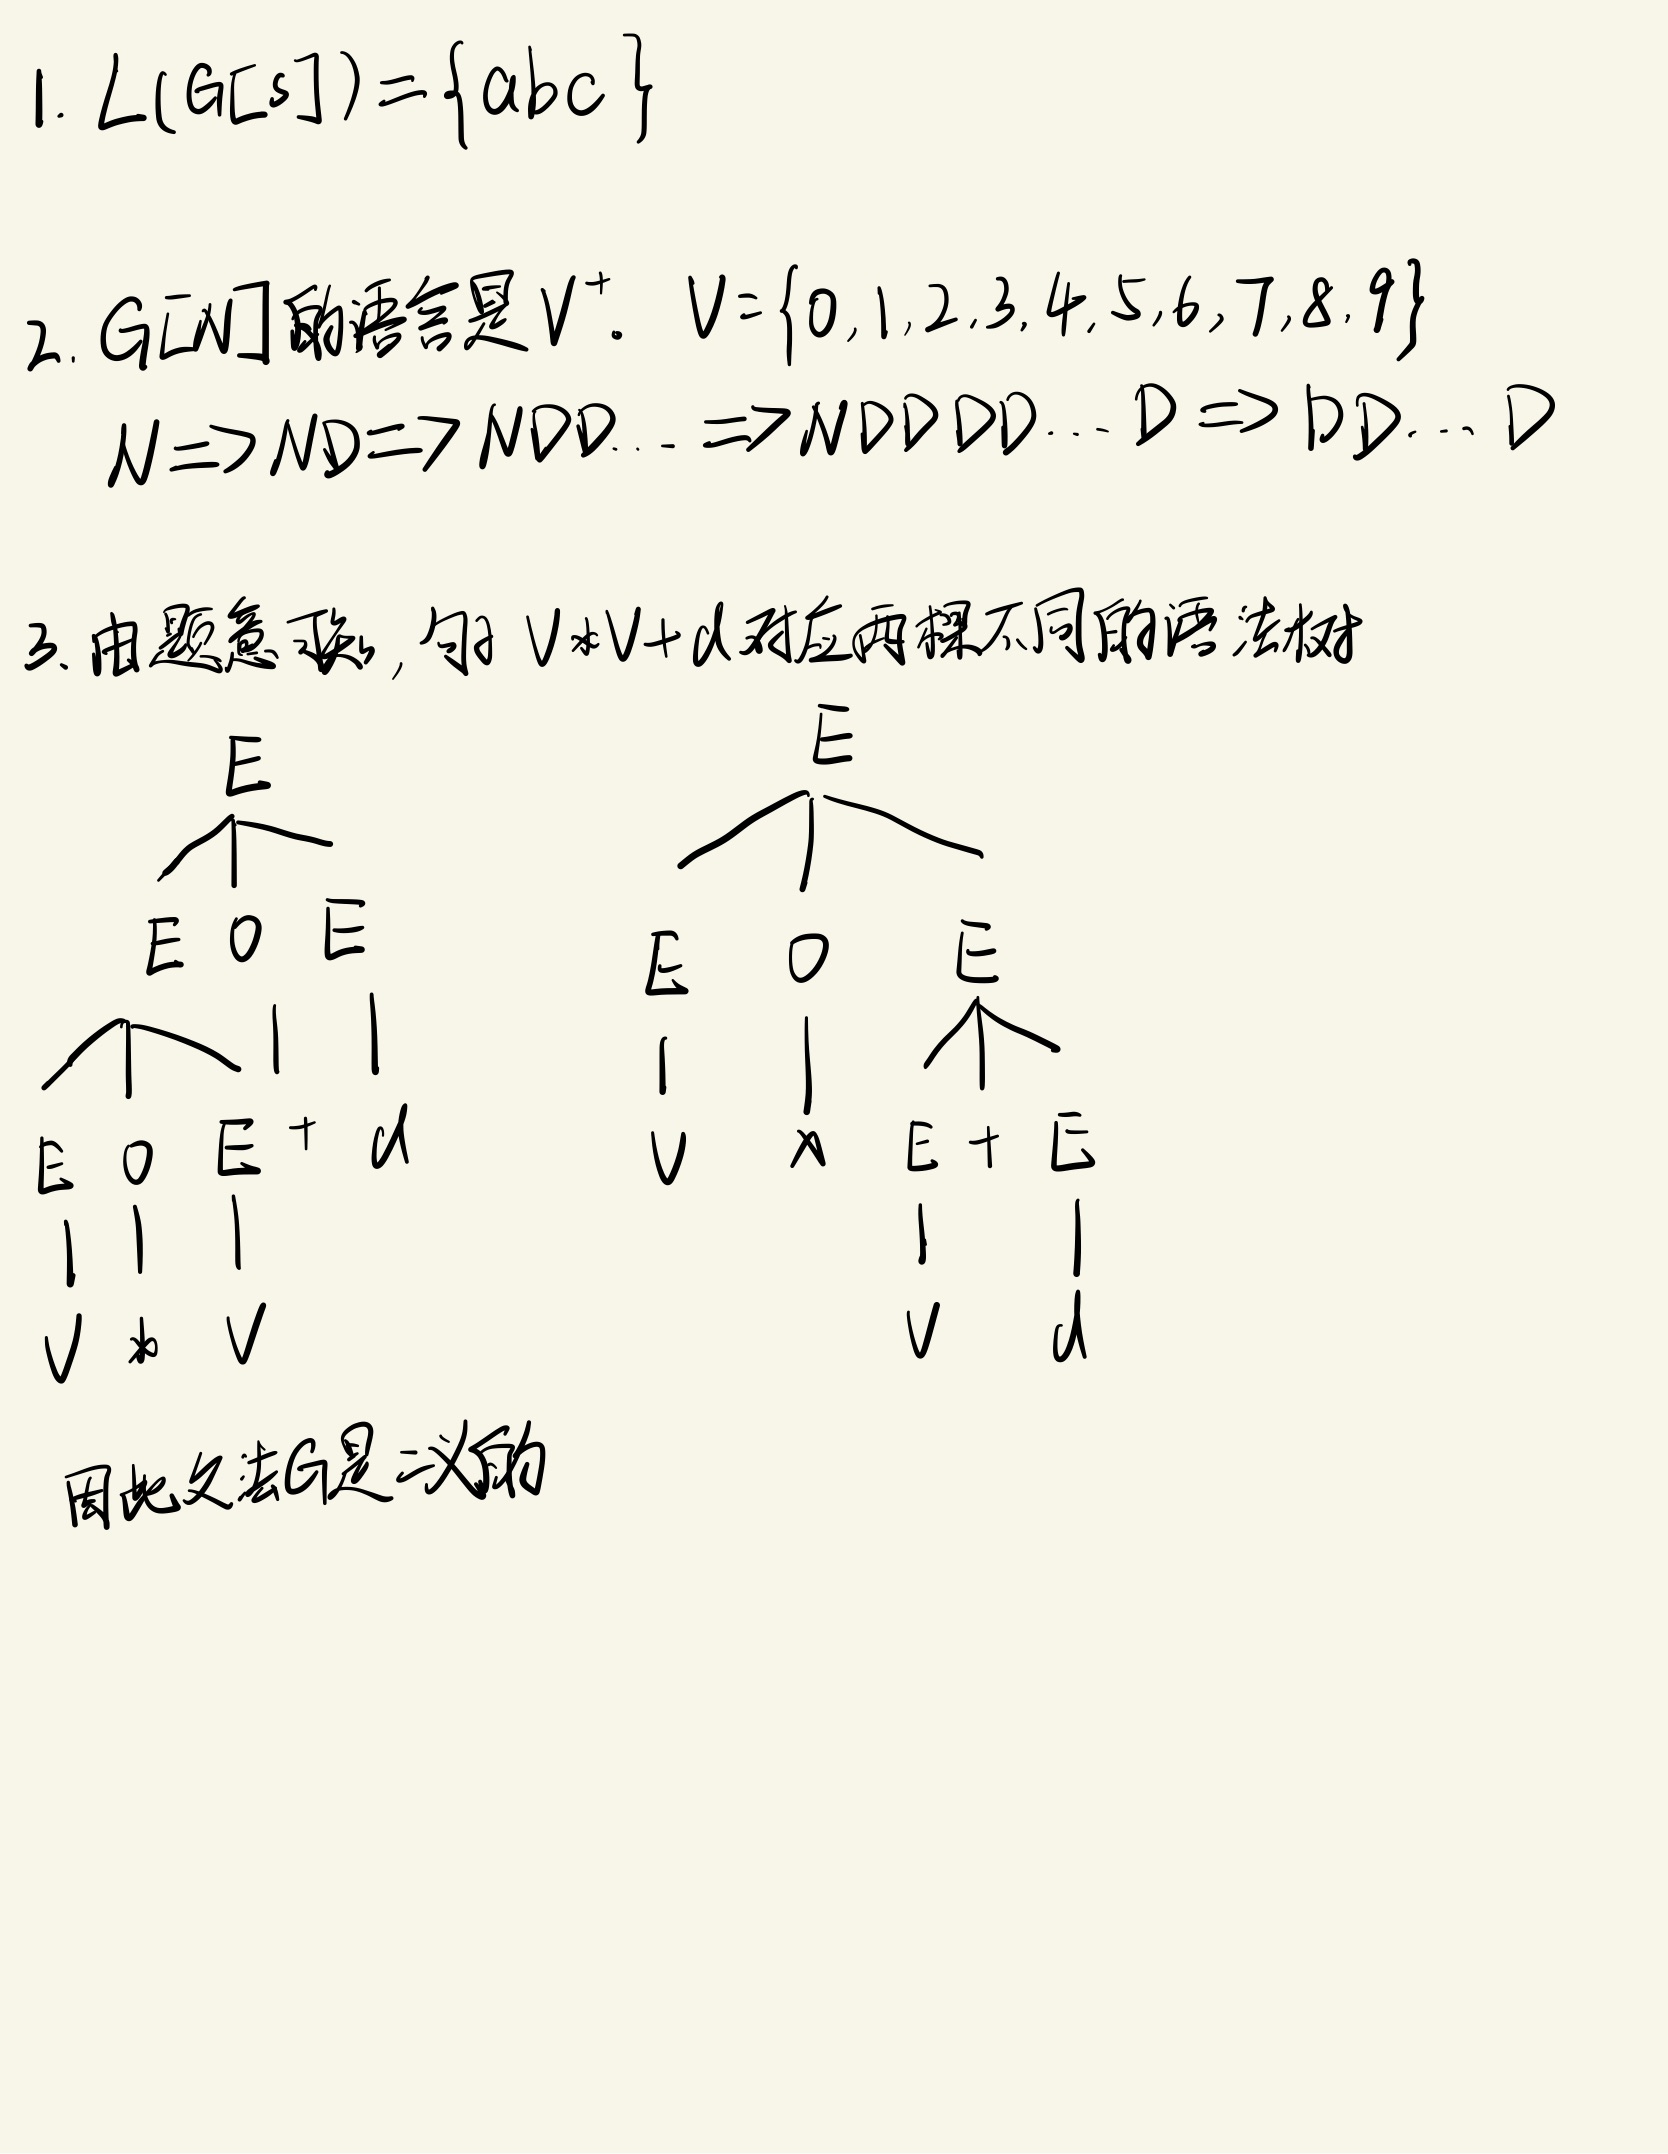 1. L(G[s])={abc}
2. G[N]的语言是V⁺. V={0,1,2,3,4,5,6,7,8,9}
N=>ND=>NDD... =>NDDDD...D=>DD...D
3、由题意可知,句子V*V+d对应两棵不同的语法树
E E
E O E E O E
E O E + d V * E + E
V * V V d
因此文法G是二义的